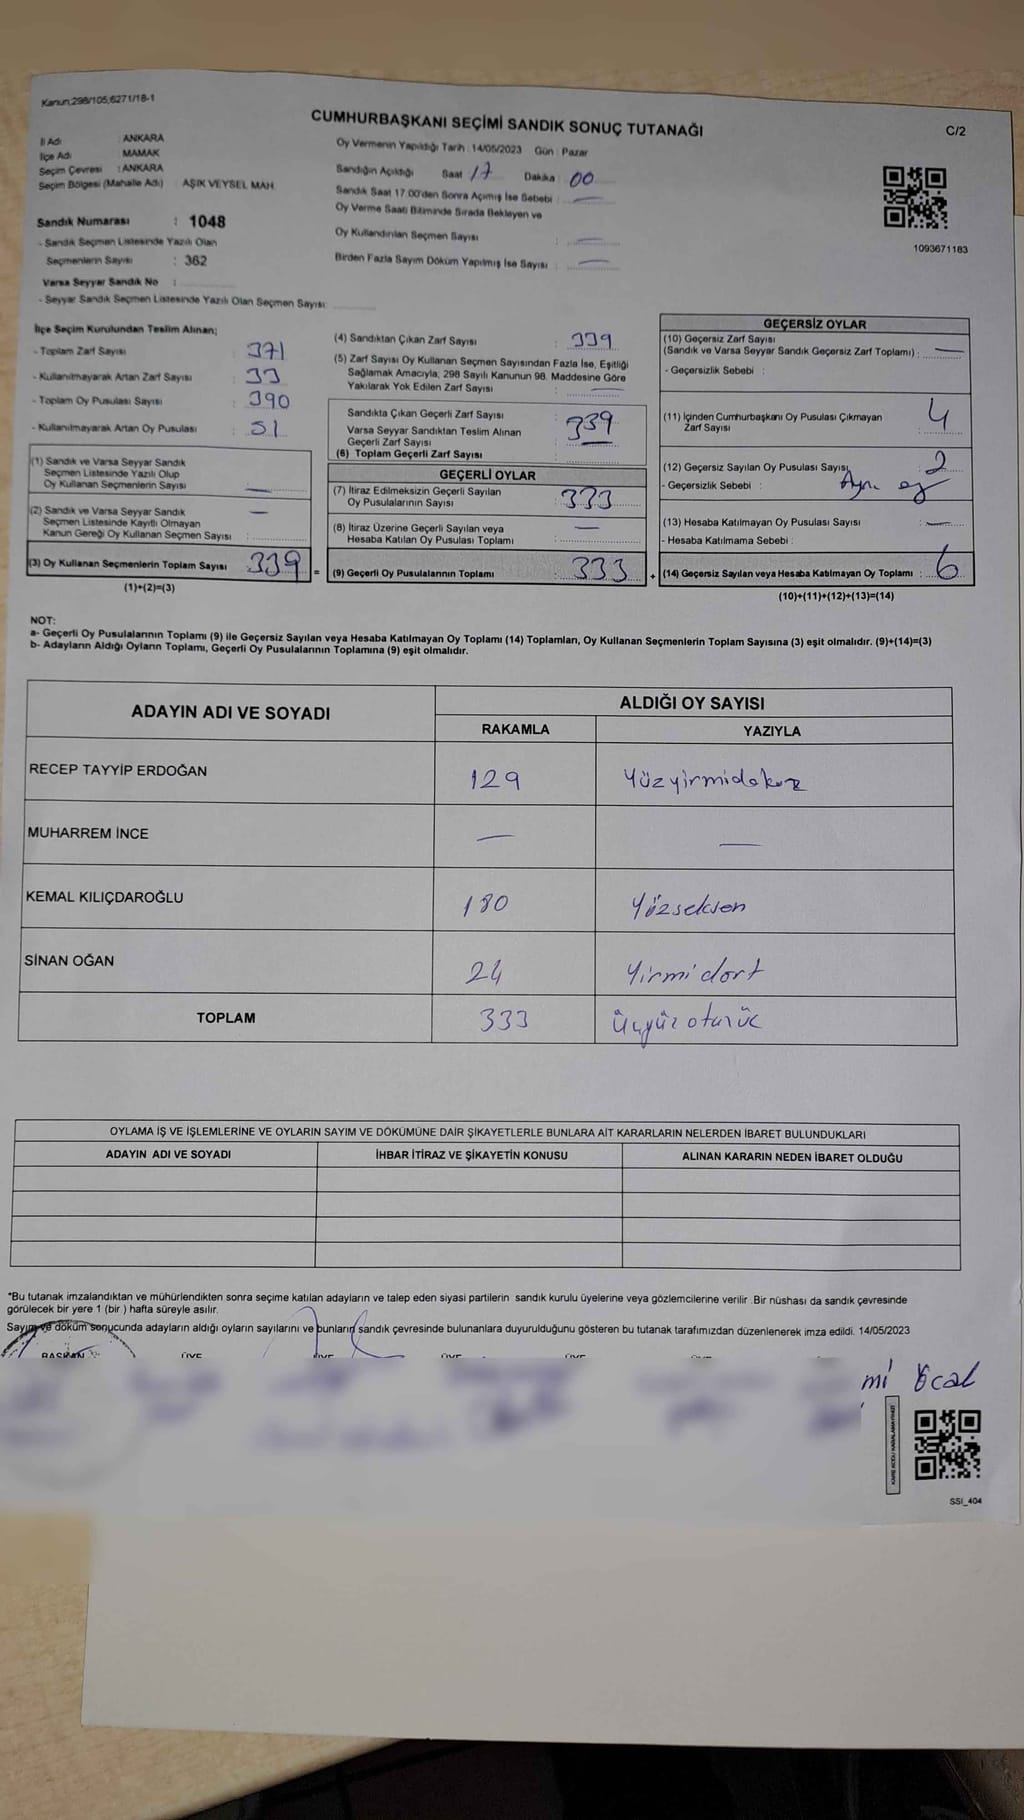 Kanun;298/105;6271/18-1
CUMHURBAŞKANI SEÇİMİ SANDIK SONUÇ TUTANAĞI
C/2
İl Adı : ANKARA
İlçe Adı : MAMAK
Seçim Çevresi : ANKARA
Seçim Bölgesi (Mahalle Adı) : AŞIK VEYSEL MAH.
Oy Vermenin Yapıldığı Tarih : 14/05/2023 Gün : Pazar
Sandığın Açıldığı Saat 17 Dakika : 00
Sandık Saat 17.00'den Sonra Açımış İse Sebebi : —
Oy Verme Saati Bitiminde Sırada Bekleyen ve
Oy Kullandırılan Seçmen Sayısı : —
Birden Fazla Sayım Döküm Yapılmış İse Sayısı : —
1093671183
Sandık Numarası : 1048
- Sandık Seçmen Listesinde Yazılı Olan
Seçmenlerin Sayısı : 362
Varsa Seyyar Sandık No :
- Seyyar Sandık Seçmen Listesinde Yazılı Olan Seçmen Sayısı:
İlçe Seçim Kurulundan Teslim Alınan;
- Toplam Zarf Sayısı : 371
- Kullanılmayarak Artan Zarf Sayısı : 33
- Toplam Oy Pusulası Sayısı : 390
- Kullanılmayarak Artan Oy Pusulası : 51
(1) Sandık ve Varsa Seyyar Sandık
Seçmen Listesinde Yazılı Olup
Oy Kullanan Seçmenlerin Sayısı : —
(2) Sandık ve Varsa Seyyar Sandık
Seçmen Listesinde Kayıtlı Olmayan
Kanun Gereği Oy Kullanan Seçmen Sayısı : —
(3) Oy Kullanan Seçmenlerin Toplam Sayısı 339 =
(1)+(2)=(3)
(4) Sandıktan Çıkan Zarf Sayısı : 339
(5) Zarf Sayısı Oy Kullanan Seçmen Sayısından Fazla İse, Eşitliği
Sağlamak Amacıyla, 298 Sayılı Kanunun 98. Maddesine Göre
Yakılarak Yok Edilen Zarf Sayısı : —
Sandıkta Çıkan Geçerli Zarf Sayısı : 339
Varsa Seyyar Sandıktan Teslim Alınan
Geçerli Zarf Sayısı :
(6) Toplam Geçerli Zarf Sayısı :
GEÇERLİ OYLAR
(7) İtiraz Edilmeksizin Geçerli Sayılan
Oy Pusulalarının Sayısı : 333
(8) İtiraz Üzerine Geçerli Sayılan veya
Hesaba Katılan Oy Pusulası Toplamı : —
(9) Geçerli Oy Pusulalarının Toplamı : 333 +
GEÇERSİZ OYLAR
(10) Geçersiz Zarf Sayısı
(Sandık ve Varsa Seyyar Sandık Geçersiz Zarf Toplamı) : —
- Geçersizlik Sebebi :
(11) İçinden Cumhurbaşkanı Oy Pusulası Çıkmayan
Zarf Sayısı : 4
(12) Geçersiz Sayılan Oy Pusulası Sayısı : 2
- Geçersizlik Sebebi :
(13) Hesaba Katılmayan Oy Pusulası Sayısı : —
- Hesaba Katılmama Sebebi :
(14) Geçersiz Sayılan veya Hesaba Katılmayan Oy Toplamı : 6
(10)+(11)+(12)+(13)=(14)
NOT:
a- Geçerli Oy Pusulalarının Toplamı (9) ile Geçersiz Sayılan veya Hesaba Katılmayan Oy Toplamı (14) Toplamları, Oy Kullanan Seçmenlerin Toplam Sayısına (3) eşit olmalıdır. (9)+(14)=(3)
b- Adayların Aldığı Oyların Toplamı, Geçerli Oy Pusulalarının Toplamına (9) eşit olmalıdır.
ADAYIN ADI VE SOYADI
ALDIĞI OY SAYISI
RAKAMLA YAZIYLA
RECEP TAYYİP ERDOĞAN 129 Yüzyirmidokuz
MUHARREM İNCE — —
KEMAL KILIÇDAROĞLU 180 Yüzseksen
SİNAN OĞAN 24 Yirmi dort
TOPLAM 333 Üçyüz otuzüc
OYLAMA İŞ VE İŞLEMLERİNE VE OYLARIN SAYIM VE DÖKÜMÜNE DAİR ŞİKAYETLERLE BUNLARA AİT KARARLARIN NELERDEN İBARET BULUNDUKLARI
ADAYIN ADI VE SOYADI İHBAR İTİRAZ VE ŞİKAYETİN KONUSU ALINAN KARARIN NEDEN İBARET OLDUĞU
*Bu tutanak imzalandıktan ve mühürlendikten sonra seçime katılan adayların ve talep eden siyasi partilerin sandık kurulu üyelerine veya gözlemcilerine verilir .Bir nüshası da sandık çevresinde
görülecek bir yere 1 (bir ) hafta süreyle asılır.
Sayım ve döküm sonucunda adayların aldığı oyların sayılarını ve bunların sandık çevresinde bulunanlara duyurulduğunu gösteren bu tutanak tarafımızdan düzenlenerek imza edildi. 14/05/2023
BAŞKAN ÜYE ÜYE ÜYE ÜYE ÜYE
mi Öcal
SSI_404